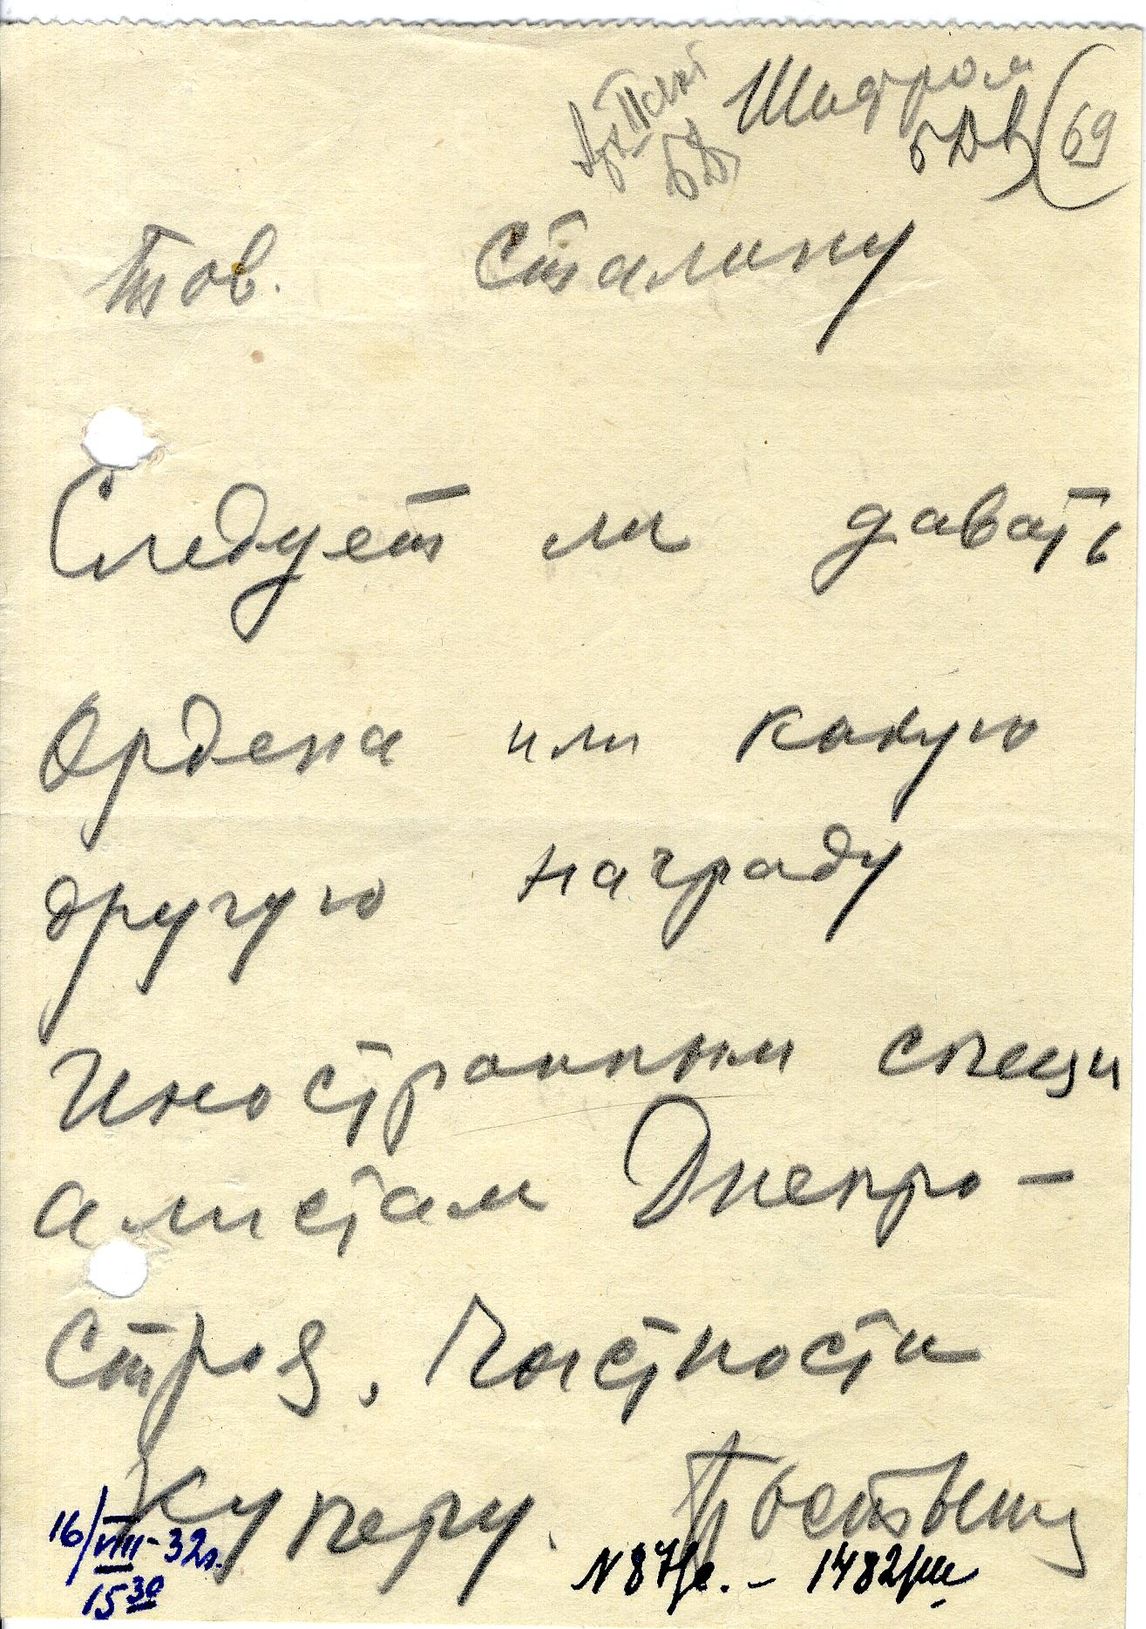 Шифром
69
Тов. Сталину
Следует ли давать
Ордена или какую
другую награду
Иностранным специ
алистам Днепро-
строя, Частности
Куперу. Постышев
16/VIII-32г.
15 30
N 87/с. - 1482/ш